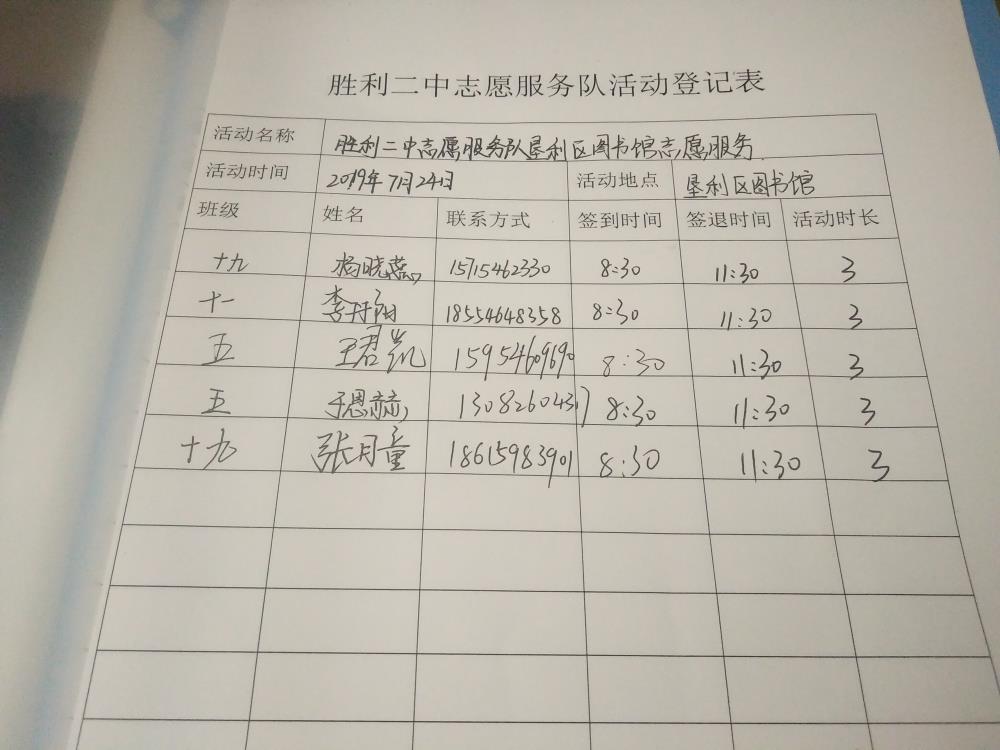 胜利二中志愿服务队活动登记表
活动名称 胜利二中志愿服务队垦利区图书馆志愿服务
活动时间 2019年7月24日 活动地点 垦利区图书馆
班级 姓名 联系方式 签到时间 签退时间 活动时长
十九 杨晓蕊 15715462330 8:30 11:30 3
十一 李丹阳 18554648358 8:30 11:30 3
五 王君凯 15954609690 8:30 11:30 3
五 于恩赫 13082604317 8:30 11:30 3
十九 张月童 18615983901 8:30 11:30 3